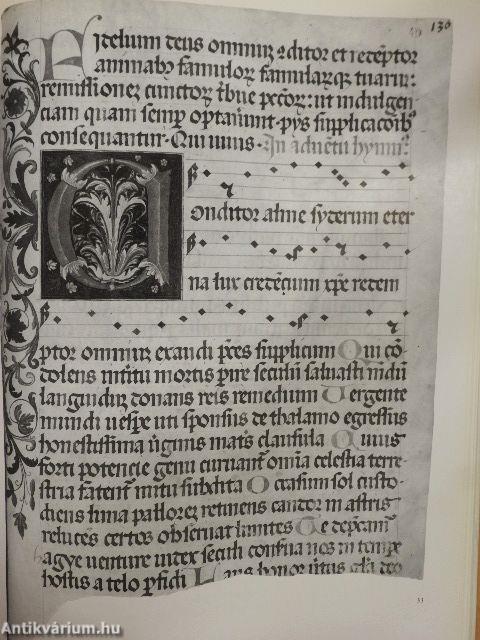 130
Fidelium deus omniuz ↄditor et redēptor
animabꝫ famuloꝝ famulaꝝqꝫ tuaruꝫ:
remissionez cunctoꝝ tͥbue pccōꝝ: ut indulgen
ciam quam semꝑ optauerunt. pijs supplicacōibꝫ
consequantur. Qui uiuis. In aduētu hymnꝰ.
Conditor alme syderum eter
na lux credencium xpē redem
ptor omniuz exaudi p̄ces supplicum Qui cō
dolens interitu mortis ꝑire seculū saluasti mūdū
languiduz donans reis remedium Vergente
mundi uespe uti sponsus de thalamo egressus
honestissima uirginis matris clausula Cuius
forti potencie genu curuant̄ om̄ia celestia terre
stria fatent̄ nutu subdita Occasum sol custo
diens luna pallorez retinens candor in astris
relucēs certos obseruat limites Te dep̄camur
hagye uenture iudex seculi conserua nos in tempore
hostis a telo ꝑfidi Laus honor uirtus
53
Antikvárium.hu